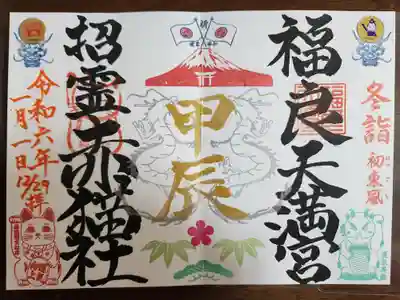 冬詣
初東風
福良天満宮
甲辰
招霊赤猫社
令和六年
一月一日
12/29拝